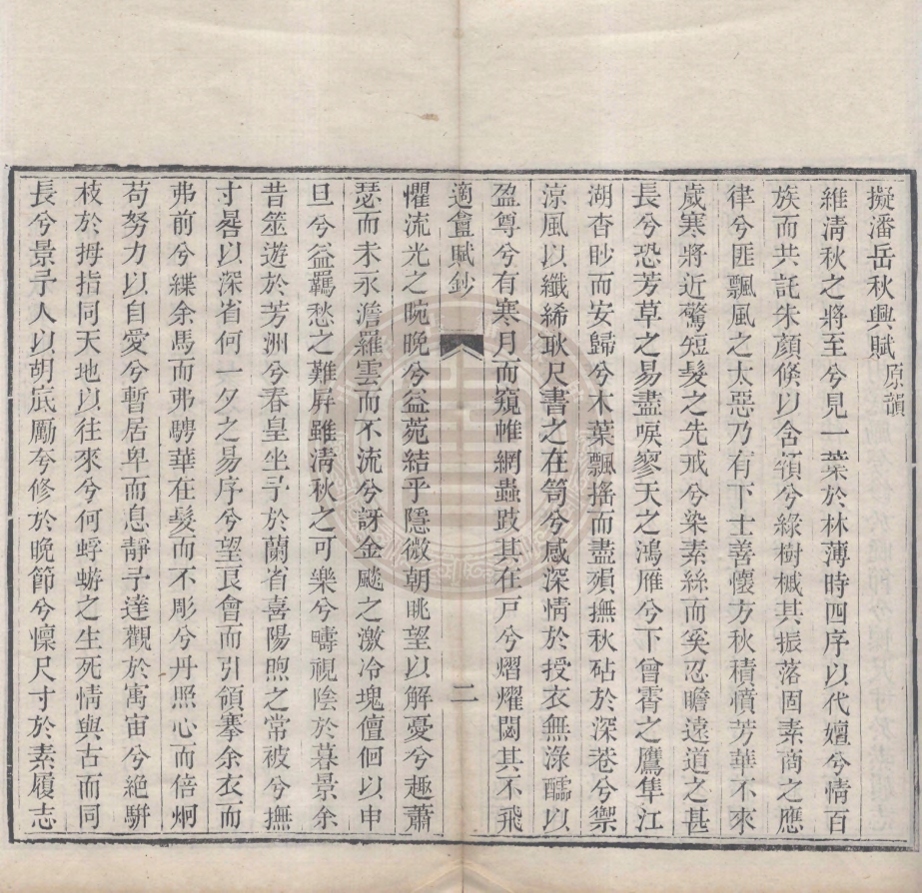 擬潘岳秋興賦原韻
維淸秋之將至兮見一葉於林薄時四序以代嬗兮情百
族而共託朱顏倏以含頷兮綠樹槭其振落固素商之應
律兮匪飄風之太惡乃有下士善懷方秋積憤芳華不來
歲寒將近驚短髮之先戒兮染素絲而奚忍瞻遠道之甚
長兮恐芳草之易盡唳寥天之鴻雁兮下曾霄之鷹隼江
湖杳眇而安歸兮木葉飄搖而盡殞撫秋砧於深巷兮禦
涼風以纖絺耿尺書之在笥兮感深情於授衣無淥醽以
盈尊兮有寒月而窺帷網蟲跂其在戸兮熠燿閟其不飛
適盦賦鈔
二
懼流光之晼晚兮益菀結乎隱微朝眺望以解憂兮趣蕭
瑟而未永澹羅雲而不流兮訝金飈之激冷塊儃佪以申
旦兮益羈愁之難屛雖淸秋之可樂兮疇視陰於暮景余
昔筮遊於芳洲兮春皇坐予於蘭省喜陽煦之常被兮撫
寸晷以深省何一夕之易序兮望良會而引領搴余衣而
弗前兮緤余馬而弗騁華在髮而不彫兮丹照心而倍炯
苟努力以自愛兮暫居卑而息靜予達觀於寓宙兮絶駢
枝於拇指同天地以往來兮何蜉蝣之生死情與古而同
長兮景予人以胡底厲夸修於晚節兮懍尺寸於素履志